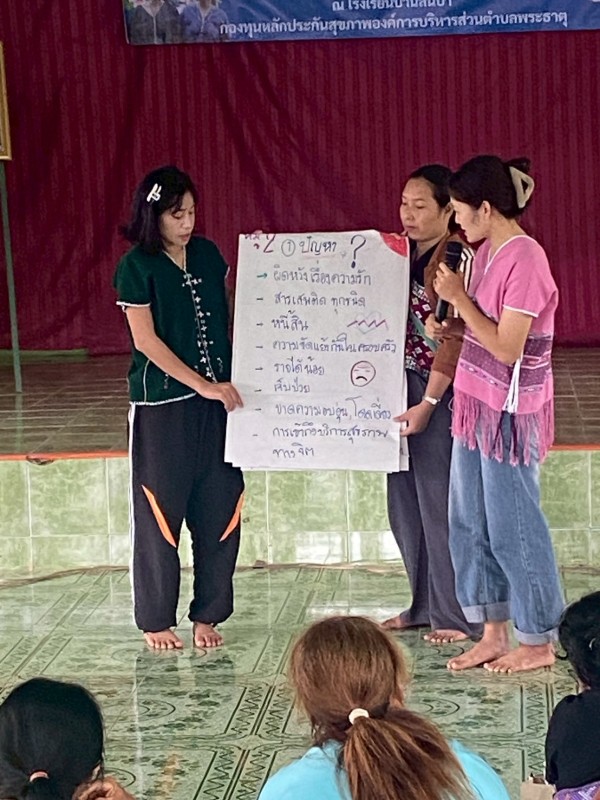 ณ โรงเรียนบ้านสันป่า
กองทุนหลักประกันสุขภาพองค์การบริหารส่วนตำบลพระธาตุ
หมู่ 2 ① ปัญหา ?
→ ผิดหวังเรื่องความรัก
- สารเสพติด ทุกชนิด
- หนี้สิน
- ความขัดแย้งกันในครอบครัว
- รายได้น้อย
- เจ็บป่วย
- ขาดความอบอุ่น, โดดเดี่ยว
- การเข้าถึงบริการสุขภาพ
ทางจิต